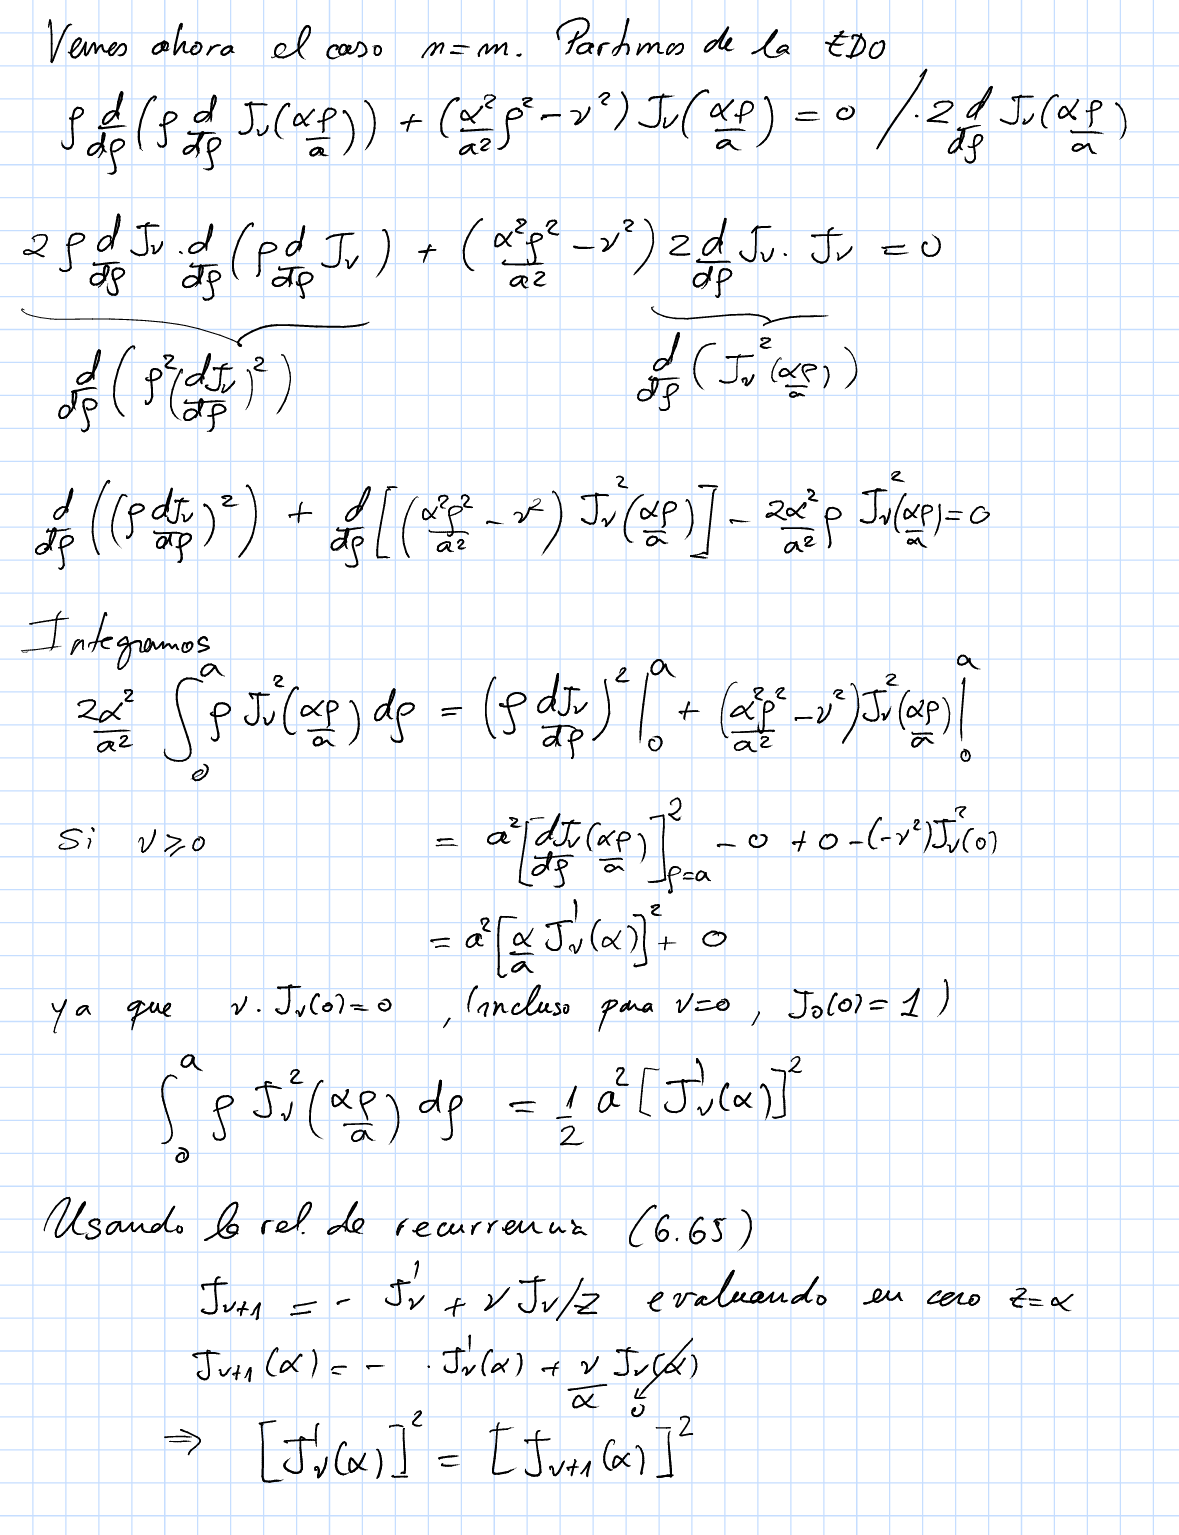 Vemos ahora el caso n=m. Partimos de la EDO
ρ d/dρ (ρ d/dρ J_ν(αρ/a)) + (α²/a² ρ² − ν²) J_ν(αρ/a) = 0 /· 2 d/dρ J_ν(αρ/a)
2 ρ d/dρ J_ν · d/dρ (ρ d/dρ J_ν) + (α²ρ²/a² − ν²) 2 d/dρ J_ν · J_ν = 0
d/dρ (ρ² (dJ_ν/dρ)²) d/dρ (J_ν²(αρ/a))
d/dρ ((ρ dJ_ν/dρ)²) + d/dρ [(α²ρ²/a² − ν²) J_ν²(αρ/a)] − 2α²/a² ρ J_ν²(αρ/a) = 0
Integramos
2α²/a² ∫₀^a ρ J_ν²(αρ/a) dρ = (ρ dJ_ν/dρ)² |₀^a + (α²ρ²/a² − ν²) J_ν²(αρ/a) |₀^a
Si ν ⩾ 0 = a² [dJ_ν/dρ (αρ/a)]²_{ρ=a} − 0 + 0 − (−ν²) J_ν²(0)
= a² [α/a J_ν'(α)]² + 0
ya que ν · J_ν(0) = 0 , (incluso para ν=0 , J₀(0) = 1 )
∫₀^a ρ J_ν²(αρ/a) dρ = 1/2 a² [J_ν'(α)]²
Usando la rel. de recurrencia (6.65)
J_{ν+1} = − J_ν' + ν J_ν/z evaluando en cero z=α
J_{ν+1}(α) = − · J_ν'(α) + ν/α J_ν(α) 0
⇒ [J_ν'(α)]² = [J_{ν+1}(α)]²